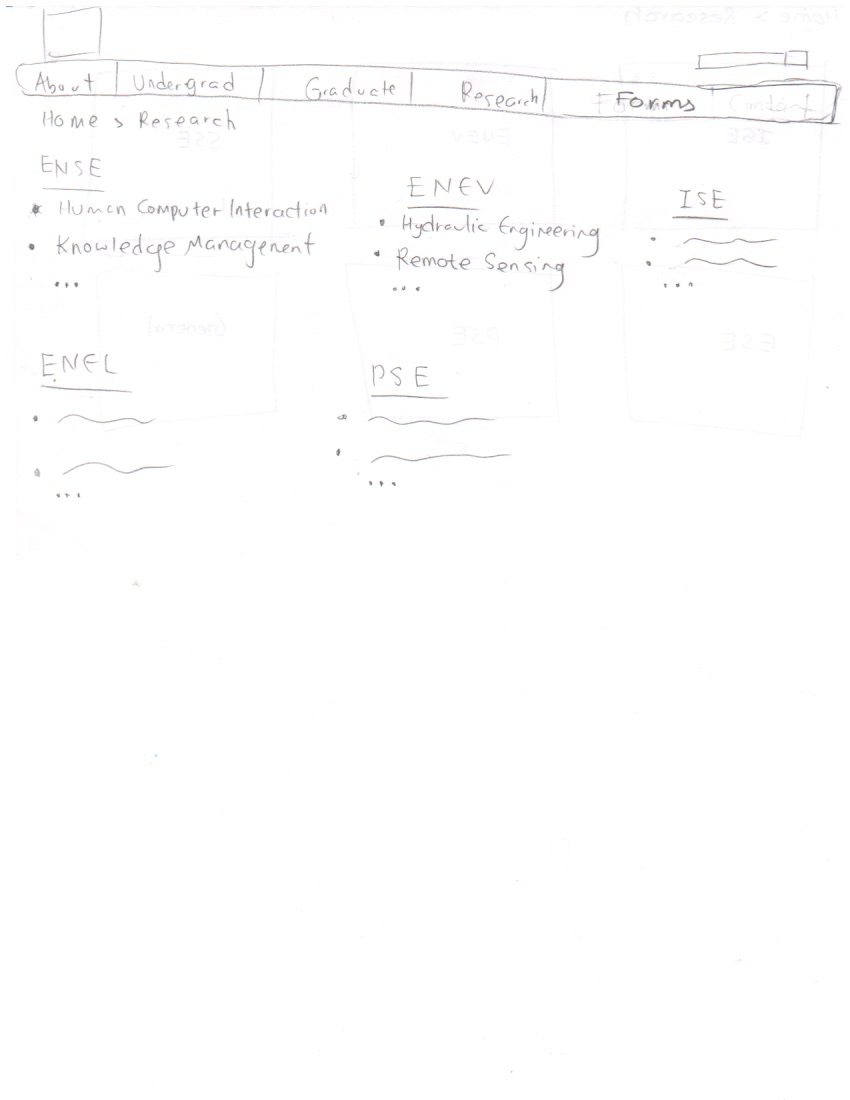 About Undergrad Graduate Research Forms
Home > Research
ENSE
Human Computer Interaction
Knowledge Management
...
ENEV
Hydraulic Engineering
Remote Sensing
...
ISE
...
ENEL
...
PSE
...